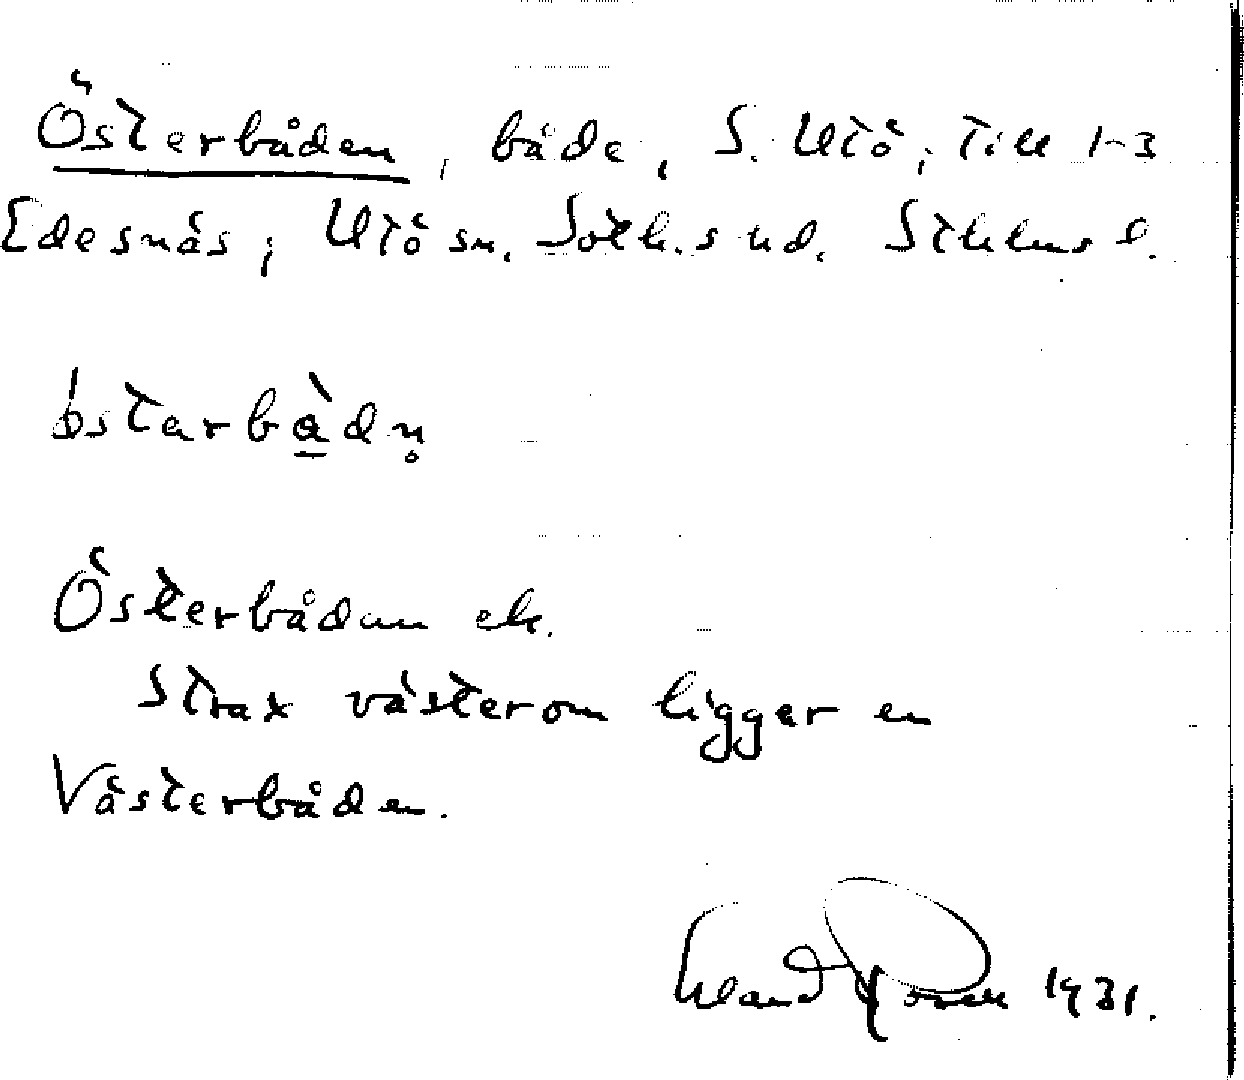 Österbåden, både, S. Utö, till 1-3
Edesnäs, Utö sn. Soth.s hd. Sthlms l.
östarbådn̥
Österbådan ek.
Strax västerom ligger en
Västerbåden.
Roland Rosell 1931.